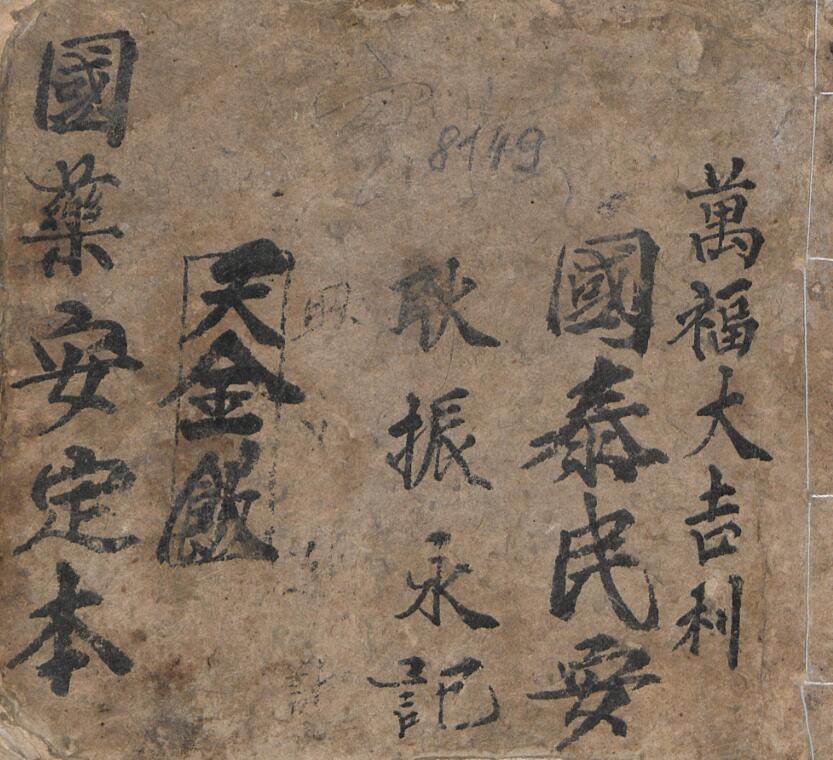 萬福大吉利
國泰民安
耿振永記
天金飯
國藥安定本
8149